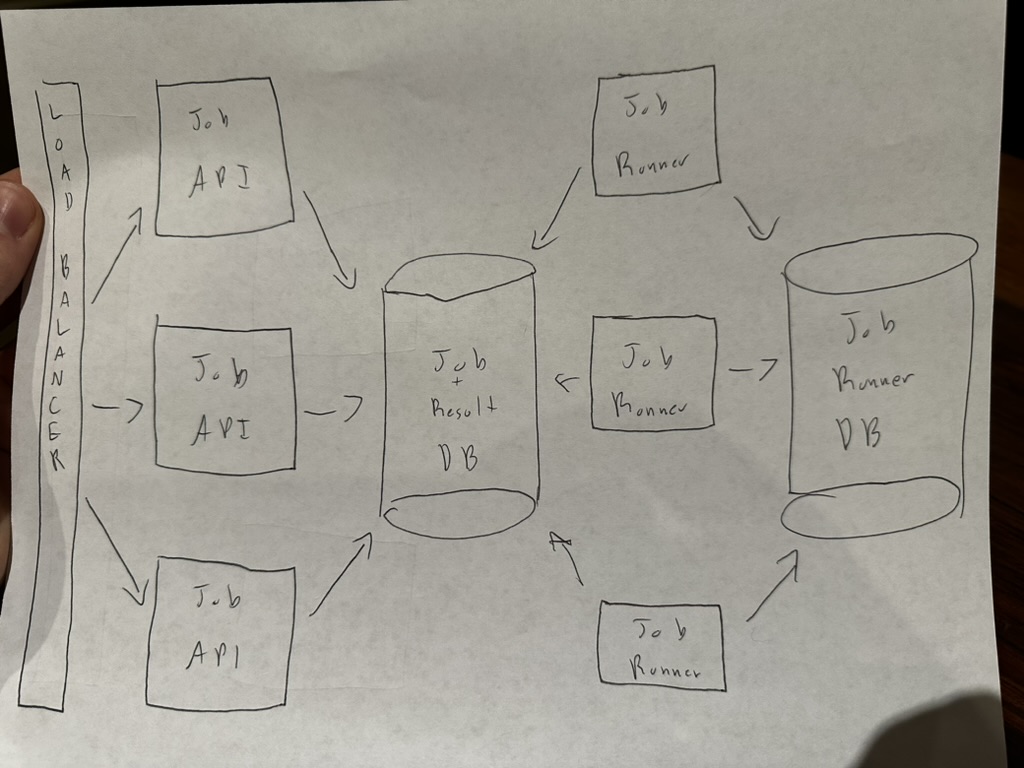 LOAD BALANCER
Job
API
Job
API
Job
API
Job
+
Result
DB
Job
Runner
Job
Runner
Job
Runner
Job
Runner
DB